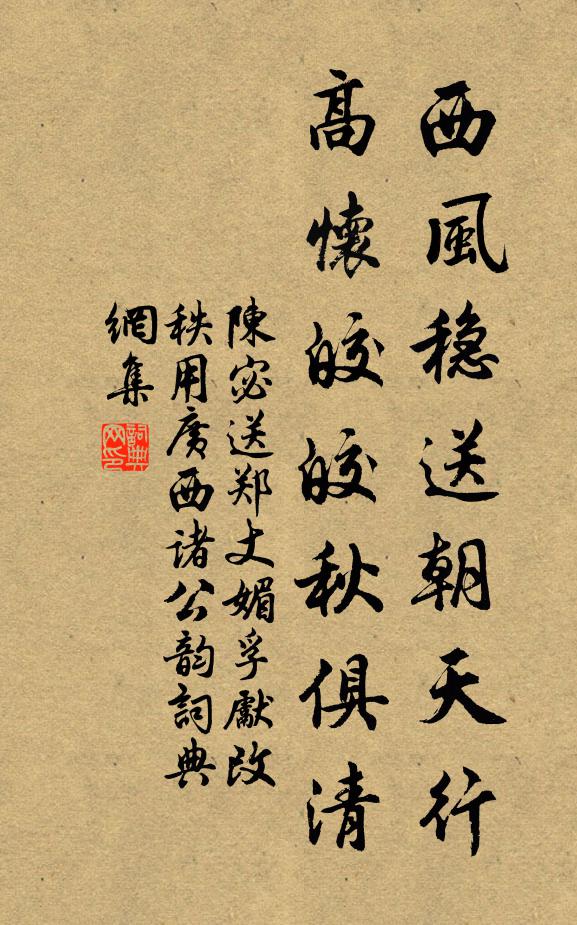 西風稳送朝天行
髙懷皎皎秋俱清
陳宓送郑丈媚孚獻改
秩用廣西诸公韵詞典
網集
詞典
网印